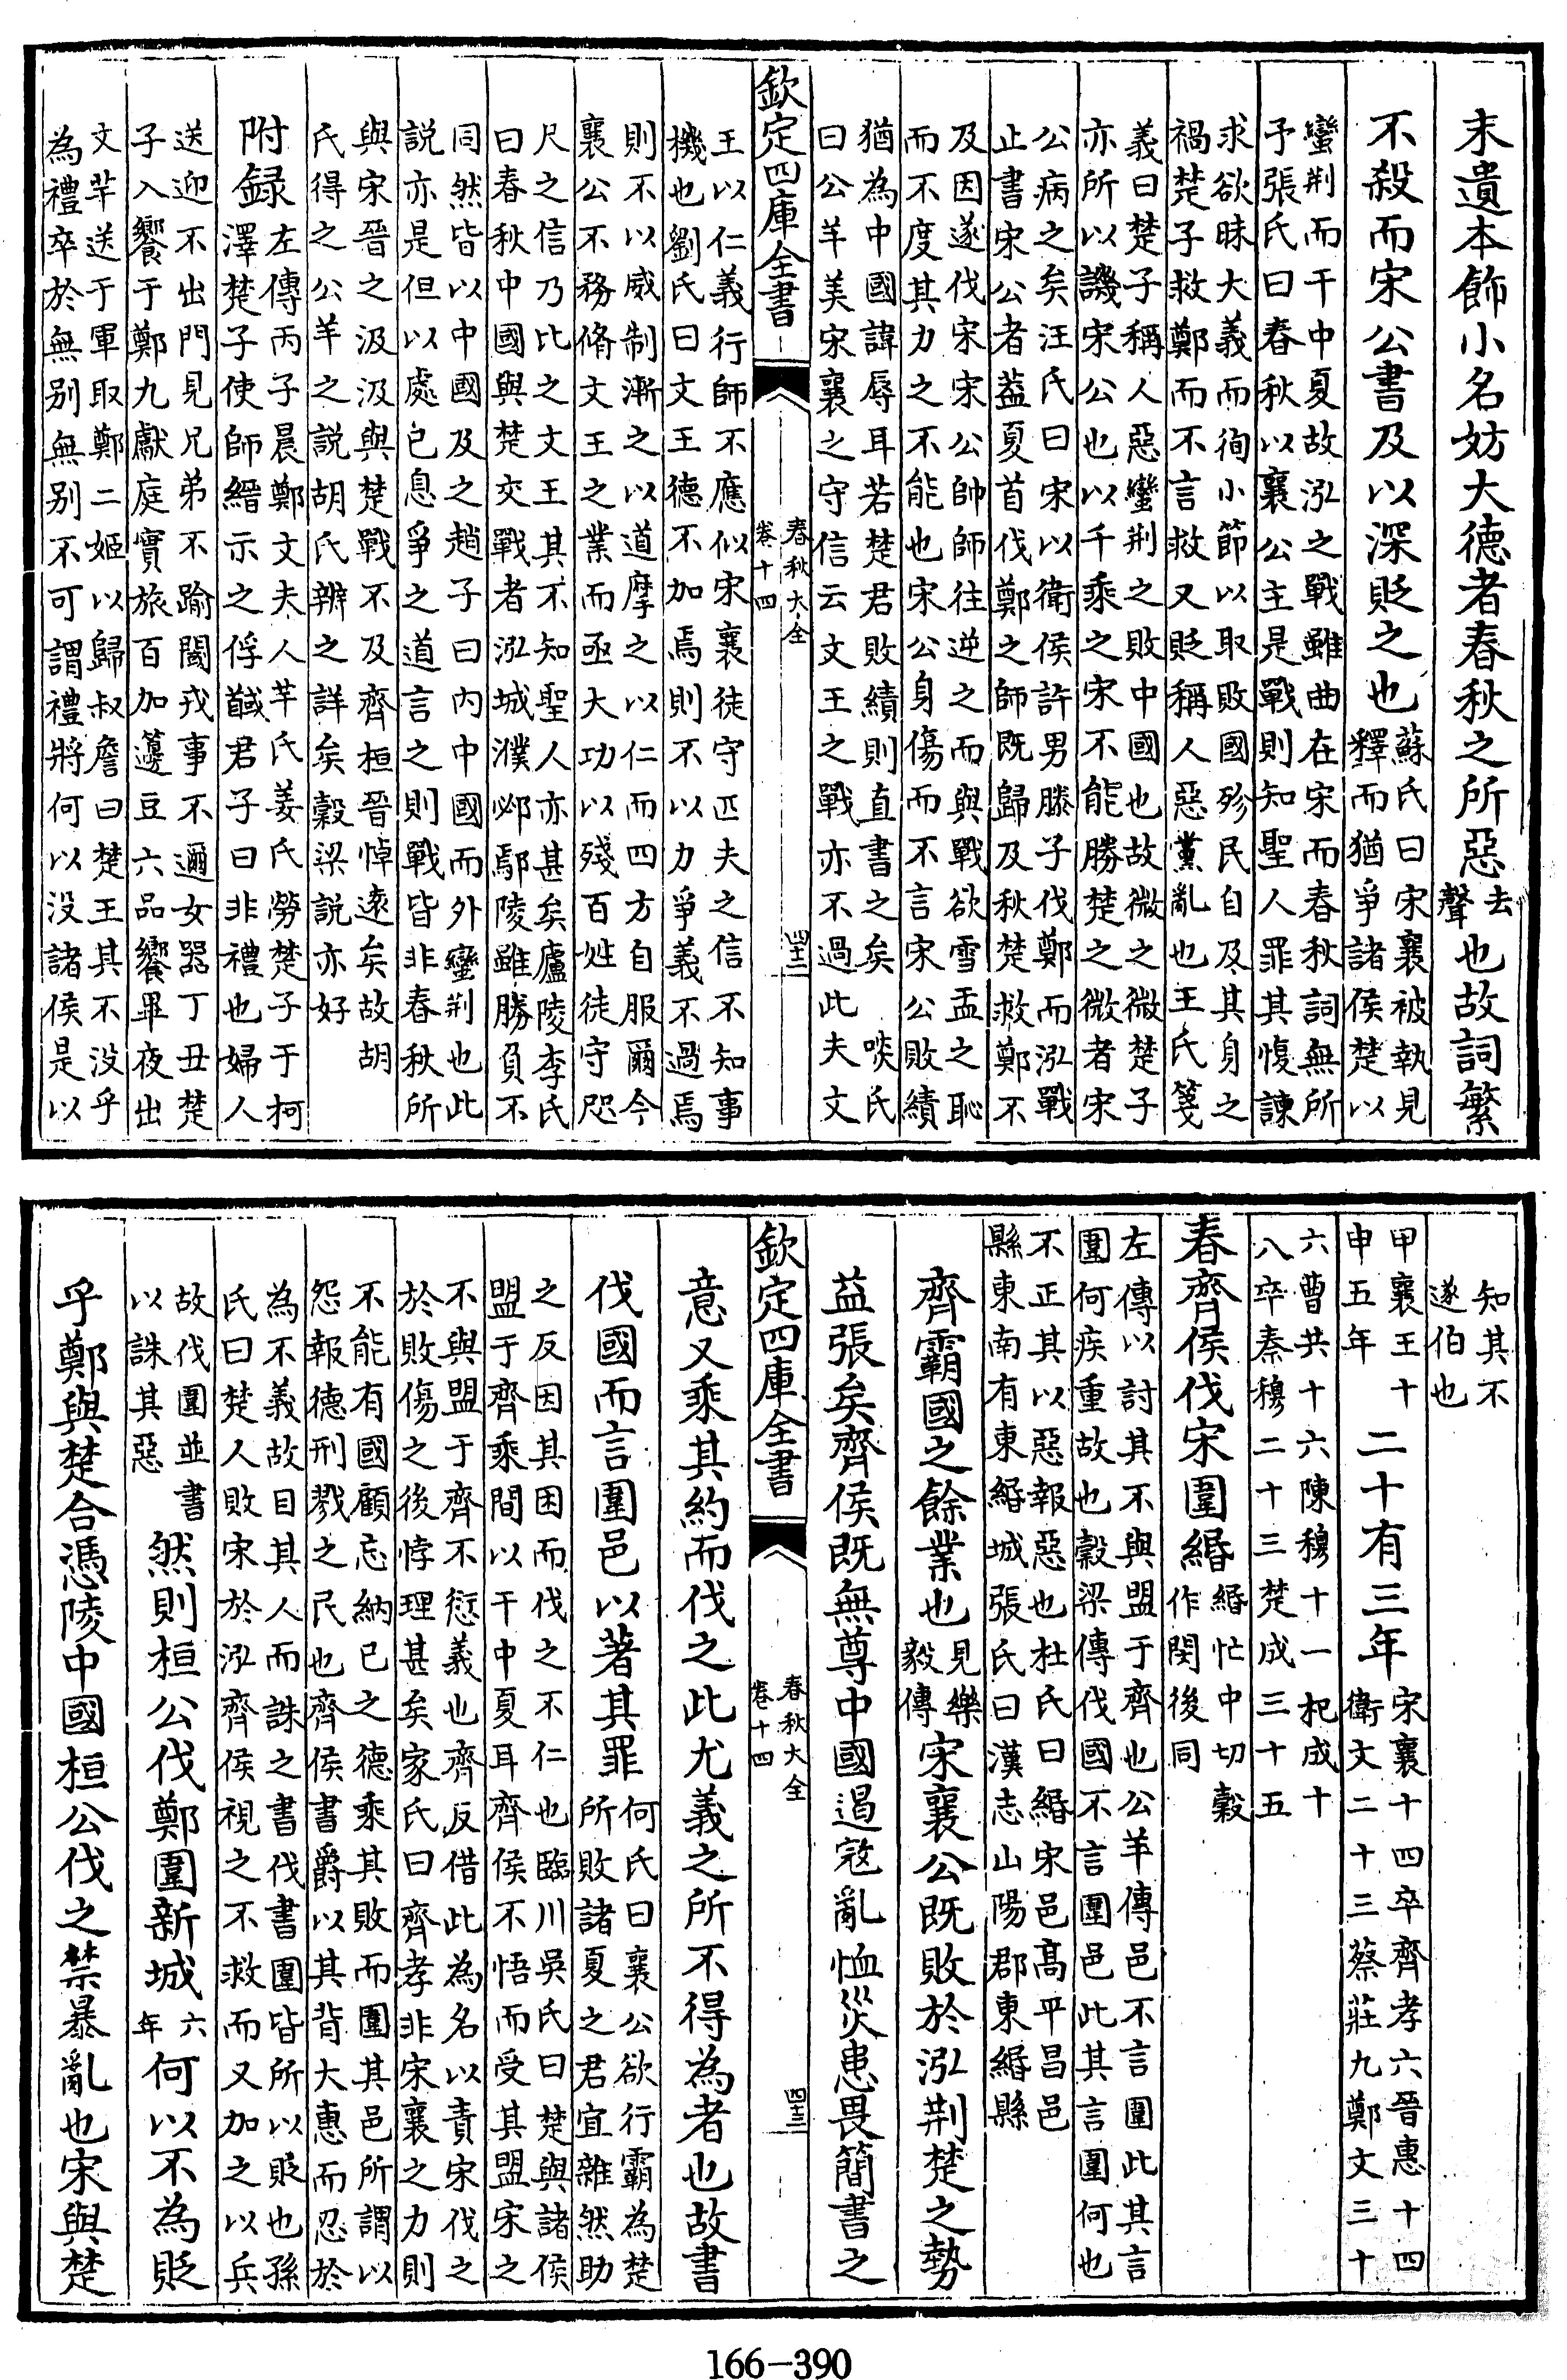 末遺本飾小名妨大德者春秋之所惡去聲也故詞繁
不殺而宋公書及以深貶之也蘇氏曰宋襄被執見
釋而猶爭諸侯楚以
蠻荆而干中夏故泓之戰雖曲在宋而春秋詞無所
予張氏曰春秋以襄公主是戰則知聖人罪其愎諫
求欲昧大義而徇小節以取敗國殄民自及其身之
禍楚子救鄭而不言救又貶稱人惡黨亂也王氏箋
義曰楚子稱人惡蠻荆之敗中國也故微之微楚子
亦所以譏宋公也以千乘之宋不能勝楚之微者宋
公病之矣汪氏曰宋以衛侯許男滕子伐鄭而泓戰
止書宋公者葢夏首伐鄭之師既歸及秋楚救鄭不
及因遂伐宋宋公帥師往逆之而與戰欲雪盂之恥
而不度其力之不能也宋公身傷而不言宋公敗績
猶為中國諱辱耳若楚君敗績則直書之矣 啖氏
曰公羊美宋襄之守信云文王之戰亦不過此夫文
欽定四庫全書
春秋大全
卷十四
四十二
王以仁義行師不應似宋襄徒守匹夫之信不知事
機也劉氏曰文王德不加焉則不以力爭義不過焉
則不以威制漸之以道摩之以仁而四方自服爾今
襄公不務脩文王之業而亟大功以殘百姓徒守咫
尺之信乃比之文王其不知聖人亦甚矣廬陵李氏
曰春秋中國與楚交戰者泓城濮邲鄢陵雖勝負不
同然皆以中國及之趙子曰内中國而外蠻荆也此
説亦是但以處已息爭之道言之則戰皆非春秋所
與宋晉之汲汲與楚戰不及齊桓晉悼逺矣故胡
氏得之公羊之説胡氏辨之詳矣穀梁説亦好
附録左傳丙子晨鄭文夫人芊氏姜氏勞楚子于柯
澤楚子使師縉示之俘馘君子曰非禮也婦人
送迎不出門見兄弟不踰閾戎事不邇女器丁丑楚
子入饗于鄭九獻庭實旅百加籩豆六品饗畢夜出
文芊送于軍取鄭二姬以歸叔詹曰楚王其不没乎
為禮卒於無别無别不可謂禮將何以没諸侯是以
知其不
遂伯也
甲襄王十
申五年
二十有三年宋襄十四卒齊孝六晉惠十四
衛文二十三蔡莊九鄭文三十
六曹共十六陳穆十一杞成十
八卒秦穆二十三楚成三十五
春齊侯伐宋圍緡緡忙巾切穀
作閔後同
左傳以討其不與盟于齊也公羊傳邑不言圍此其言
圍何疾重故也穀梁傳伐國不言圍邑此其言圍何也
不正其以惡報惡也杜氏曰緡宋邑髙平昌邑
縣東南有東緡城張氏曰漢志山陽郡東緡縣
齊霸國之餘業也見樂
毅傳宋襄公既敗於泓荆楚之勢
益張矣齊侯既無尊中國遏寇亂恤災患畏簡書之
欽定四庫全書
春秋大全
卷十四
四十三
意又乘其約而伐之此尤義之所不得為者也故書
伐國而言圍邑以著其罪何氏曰襄公欲行霸為楚
所敗諸夏之君宜雜然助
之反因其困而伐之不仁也臨川吳氏曰楚與諸侯
盟于齊乘間以干中夏耳齊侯不悟而受其盟宋之
不與盟于齊不愆義也齊反借此為名以責宋伐之
於敗傷之後悖理甚矣家氏曰齊孝非宋襄之力則
不能有國顧忘納已之德乘其敗而圍其邑所謂以
怨報德刑戮之民也齊侯書爵以其背大惠而忍於
為不義故目其人而誅之書伐書圍皆所以貶也孫
氏曰楚人敗宋於泓齊侯視之不救而又加之以兵
故伐圍並書
以誅其惡
然則桓公伐鄭圍新城六
年何以不為貶
乎鄭與楚合憑陵中國桓公伐之禁暴亂也宋與楚
166-390